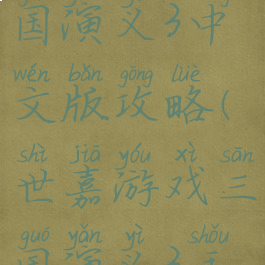 国演义3中
wén bǎn gōng lüè
文版攻略(
shì jiā yóu xì sān
世嘉游戏三
guó yǎn yì shǒu
国演义3手